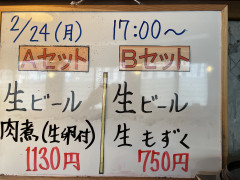 2/24(月) 17:00〜
Aセット
生ビール
肉煮(生卵付)
1130円
Bセット
生ビール
生もずく
750円